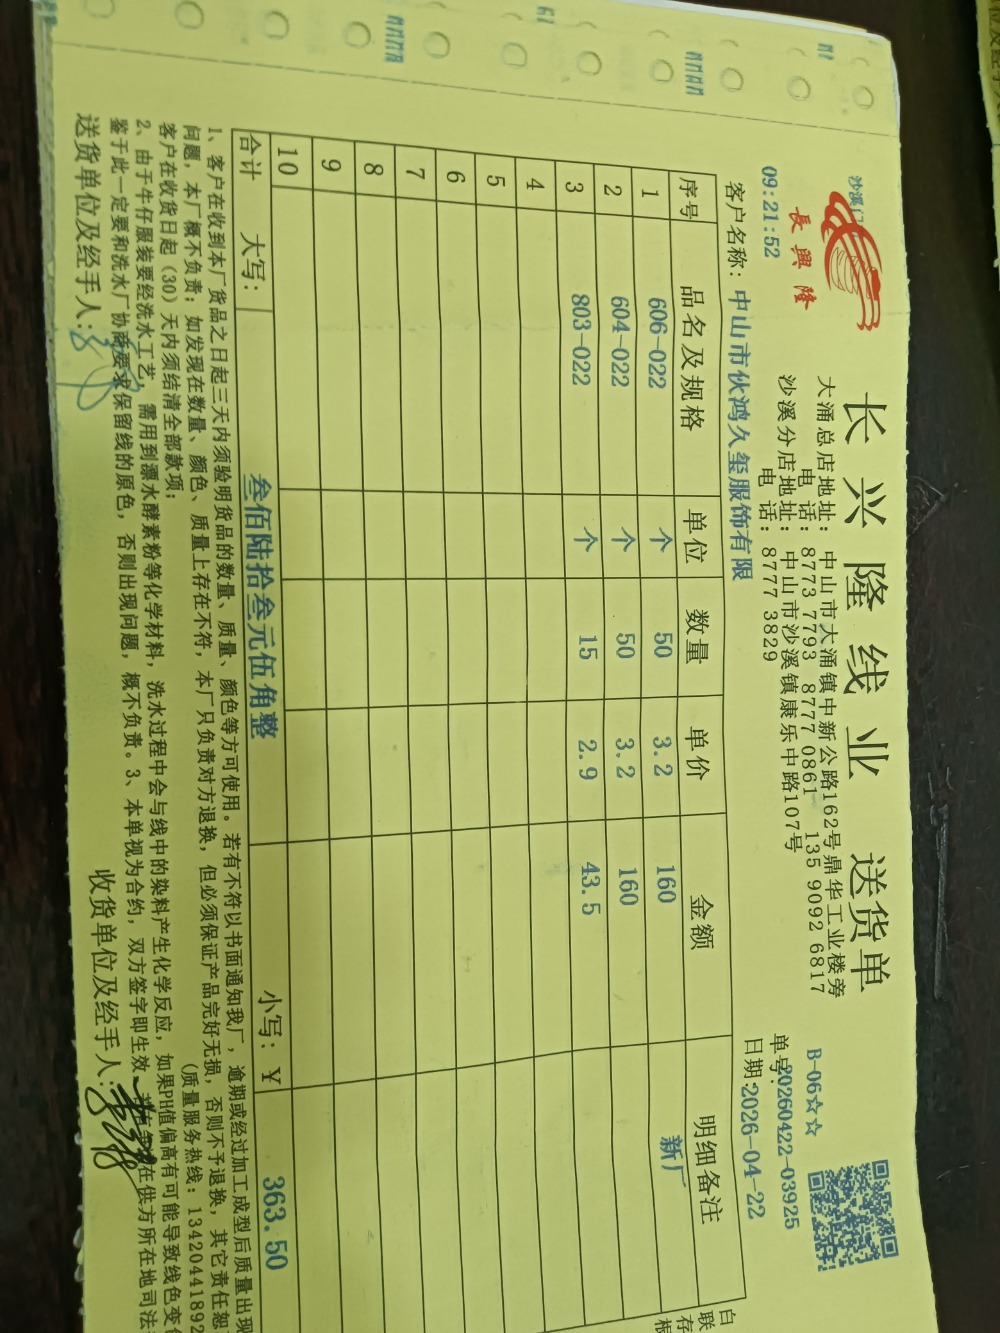 沙溪门
長興隆
长兴隆线业 送货单
大涌总店地址：中山市大涌镇中新公路162号鼎华工业楼旁
电 话：8773 7793 8777 0861 135 9092 6817
沙溪分店地址：中山市沙溪镇康乐中路107号
电 话：8777 3829
B-06☆☆
单号:20260422-03925
日期:2026-04-22
09:21:52
客户名称：中山市伙鸿久玺服饰有限
序号 品名及规格 单位 数量 单价 金额 明细备注
1 606-022 个 50 3.2 160 新厂
2 604-022 个 50 3.2 160
3 803-022 个 15 2.9 43.5
4
5
6
7
8
9
10
合计 大写： 叁佰陆拾叁元伍角整 小写：￥ 363.50
白联存根
1、客户在收到本厂货品之日起三天内须验明货品的数量、质量、颜色等方可使用。若有不符以书面通知我厂，逾期或经过加工成型后质量出现
问题，本厂概不负责；如发现在数量、颜色、质量上存在不符，本厂只负责对方退换，但必须保证产品完好无损，否则不予退换，其它责任恕
客户在收货日起（30）天内须结清全部款项； (质量服务热线：13420441892
2、由于牛仔服装要经洗水工艺，需用到漂水酵素粉等化学材料，洗水过程中会与线中的染料产生化学反应，如果PH值偏高有可能导致线色变
鉴于此一定要和洗水厂协商要求保留线的原色，否则出现问题，概不负责。3、本单视为合约，双方签字即生效 在供方所在地司法
送货单位及经手人： 收货单位及经手人：